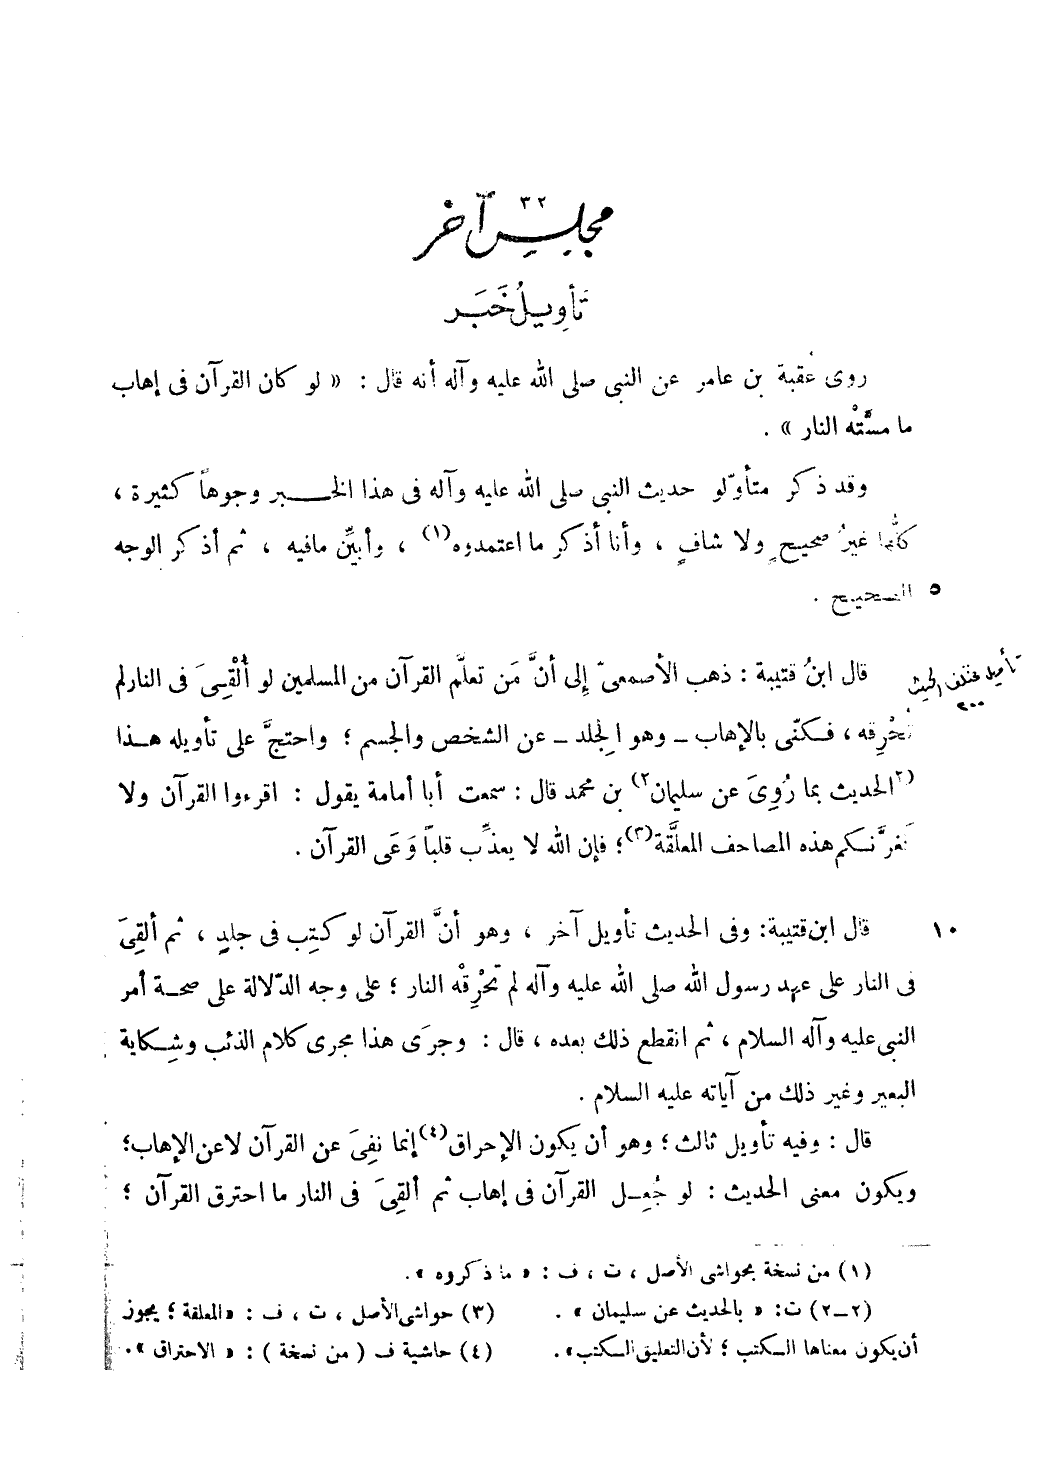 مجلس آخر
٣٢
تأويلُ خَبَر
روى عُقبة بن عامر عن النبى صلى الله عليه وآله أنه قال : « لو كان القرآن فى إهاب
ما مسَّتْه النار » .
وقد ذكر متأوّلو حديث النبى صلى الله عليه وآله فى هذا الخبر وجوهاً كثيرة ،
كلُّها غيرُ صحيح ٍ ولا شافٍ ، وأنا أذكر ما اعتمدوه(١) ، وأبيِّن مافيه ، ثم أذكر الوجه
٥ الصحيح .
قال ابنُ قتيبة : ذهب الأصمعىّ إلى أنَّ مَن تعلَّم القرآن من المسلمين لو أُلْقِىَ فى النار لم
تحْرِقه ، فكنّى بالإهاب ــ وهو الجِلد ــ عن الشخص والجسم ؛ واحتجَّ على تأويله هذا
(٢الحديث بما رُوِىَ عن سليمان٢) بن محمد قال : سمعت أبا أمامة يقول : اقرءوا القرآن ولا
تغرَّنكم هذه المصاحف المعلَّقة(٣)؛ فإن الله لا يعذِّب قلباً وَعَى القرآن .
١٠ قال ابن قتيبة: وفى الحديث تأويل آخر ، وهو أنَّ القرآن لو كتِب فى جلدٍ ، ثم ألقِىَ
فى النار على عهد رسول الله صلى الله عليه وآله لم تحْرِقْه النار ؛ على وجه الدّلالة على صحة أمر
النبى عليه وآله السلام ، ثم انقطع ذلك بعده ، قال : وجرَى هذا مجرى كلام الذئب وشِكاية
البعير وغير ذلك من آياته عليه السلام .
قال : وفيه تأويل ثالث ؛ وهو أن يكون الإحراق(٤) إنما نفِىَ عن القرآن لا عن الإهاب؛
ويكون معنى الحديث : لو جُعِل القرآن فى إهاب ثم ألقِىَ فى النار ما احترق القرآن ؛
(١) من نسخة بحواشى الأصل ، ت ، ف : « ما ذكروه ».
(٢ــ٢) ت: « بالحديث عن سليمان » . (٣) حواشى الأصل ، ت ، ف : « المعلقة ؛ يجوز
أن يكون معناها الكتب ؛ لأن التعليق الكتب». (٤) حاشية ف ( من نسخة ) : « الاحتراق ».